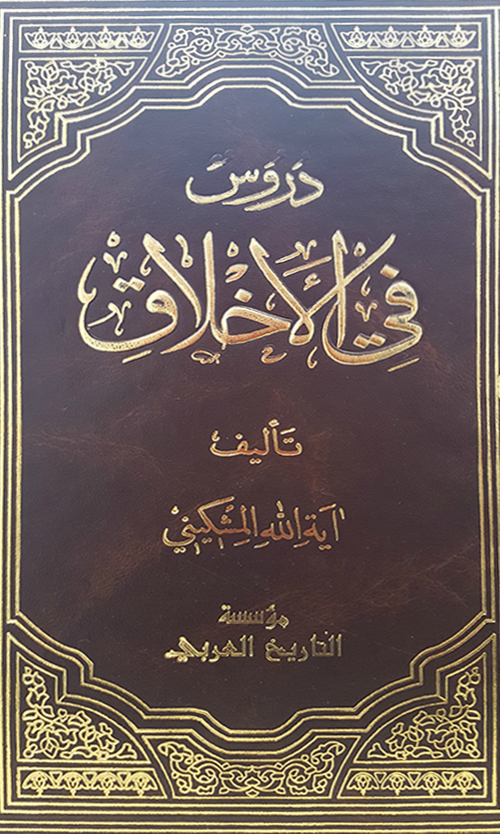 دروس
في الأخلاق
تأليف
آية الله المشكيني
مؤسسة
التاريخ العربي